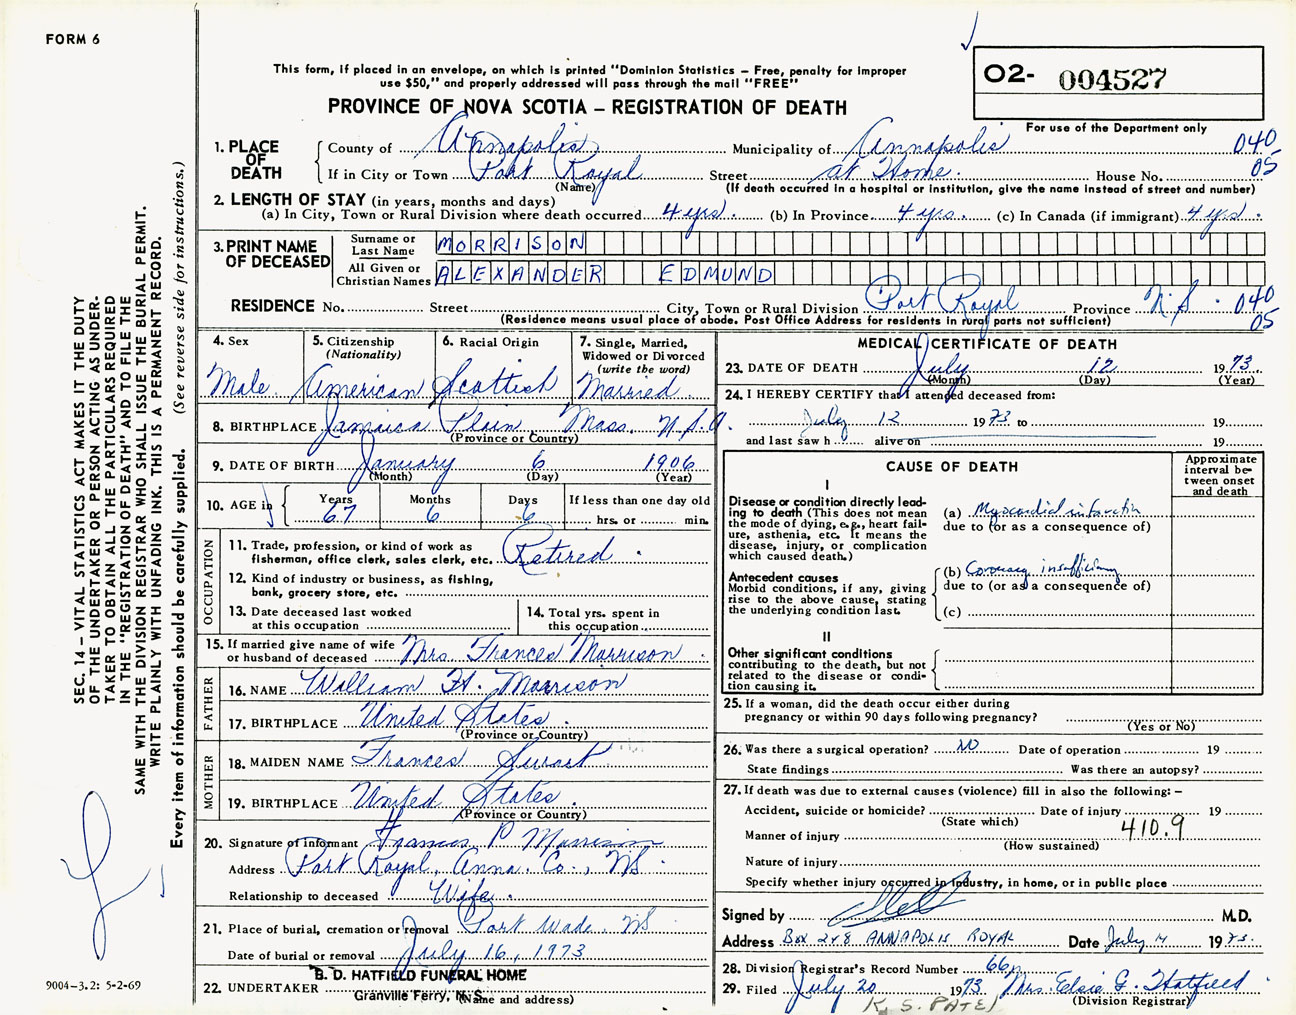 FORM 6
This form, if placed in an envelope, on which is printed "Dominion Statistics – Free, penalty for improper
use $50," and properly addressed will pass through the mail "FREE"
PROVINCE OF NOVA SCOTIA – REGISTRATION OF DEATH
02- 004527
For use of the Department only
1. PLACE OF DEATH
County of Annapolis Municipality of Annapolis 040
If in City or Town Port Royal Street at Home. House No. 05
(Name) (If death occurred in a hospital or institution, give the name instead of street and number)
2. LENGTH OF STAY (in years, months and days)
(a) In City, Town or Rural Division where death occurred 4 yrs. (b) In Province 4 yrs. (c) In Canada (if immigrant) 4 yrs.
3. PRINT NAME OF DECEASED
Surname or Last Name MORRISON
All Given or Christian Names ALEXANDER EDMUND
RESIDENCE No. Street City, Town or Rural Division Port Royal Province N.S. 040
(Residence means usual place of abode. Post Office Address for residents in rural parts not sufficient) 05
SEC. 14 – VITAL STATISTICS ACT MAKES IT THE DUTY
OF THE UNDERTAKER OR PERSON ACTING AS UNDER-
TAKER TO OBTAIN ALL THE PARTICULARS REQUIRED
IN THE "REGISTRATION OF DEATH" AND TO FILE THE
SAME WITH THE DIVISION REGISTRAR WHO SHALL ISSUE THE BURIAL PERMIT.
WRITE PLAINLY WITH UNFADING INK. THIS IS A PERMANENT RECORD.
Every item of information should be carefully supplied. (See reverse side for instructions.)
4. Sex
Male
5. Citizenship
(Nationality)
American
6. Racial Origin
Scottish
7. Single, Married,
Widowed or Divorced
(write the word)
Married
8. BIRTHPLACE Jamaica Plain, Mass. U.S.A.
(Province or Country)
9. DATE OF BIRTH January 6 1906
(Month) (Day) (Year)
10. AGE in
Years Months Days If less than one day old
67 6 6 hrs. or min.
OCCUPATION
11. Trade, profession, or kind of work as
fisherman, office clerk, sales clerk, etc. Retired
12. Kind of industry or business, as fishing,
bank, grocery store, etc.
13. Date deceased last worked
at this occupation
14. Total yrs. spent in
this occupation
15. If married give name of wife
or husband of deceased Mrs. Frances Morrison
FATHER
16. NAME William H. Morrison
17. BIRTHPLACE United States
(Province or Country)
MOTHER
18. MAIDEN NAME Frances
19. BIRTHPLACE United States
(Province or Country)
20. Signature of informant Frances P Morrison
Address Port Royal, Anna. Co., NS
Relationship to deceased Wife
21. Place of burial, cremation or removal Port Wade, NS
Date of burial or removal July 16, 1973
B. D. HATFIELD FUNERAL HOME
22. UNDERTAKER Granville Ferry, N. S.
(Name and address)
9004-3.2: 5-2-69
MEDICAL CERTIFICATE OF DEATH
23. DATE OF DEATH July 12 1973
(Month) (Day) (Year)
24. I HEREBY CERTIFY that I attended deceased from:
July 12 1973 to 19
and last saw h alive on 19
CAUSE OF DEATH
Approximate
interval be-
tween onset
and death
I
Disease or condition directly lead-
ing to death (This does not mean
the mode of dying, e.g., heart fail-
ure, asthenia, etc. It means the
disease, injury, or complication
which caused death.)
(a) Myocardial infarction
due to (or as a consequence of)
Antecedent causes
Morbid conditions, if any, giving
rise to the above cause, stating
the underlying condition last.
(b) Coronary insufficiency
due to (or as a consequence of)
(c)
II
Other significant conditions
contributing to the death, but not
related to the disease or condi-
tion causing it.
25. If a woman, did the death occur either during
pregnancy or within 90 days following pregnancy?
(Yes or No)
26. Was there a surgical operation? NO Date of operation 19
State findings Was there an autopsy?
27. If death was due to external causes (violence) fill in also the following: –
Accident, suicide or homicide? Date of injury 19
(State which)
410.9
Manner of injury
(How sustained)
Nature of injury
Specify whether injury occurred in industry, in home, or in public place
Signed by M.D.
Address BOX 248 ANNAPOLIS ROYAL Date July 1973.
28. Division Registrar's Record Number 66
29. Filed July 20 1973 Mrs. Elsie G. Hatfield
(Division Registrar)
K. S. PATEL